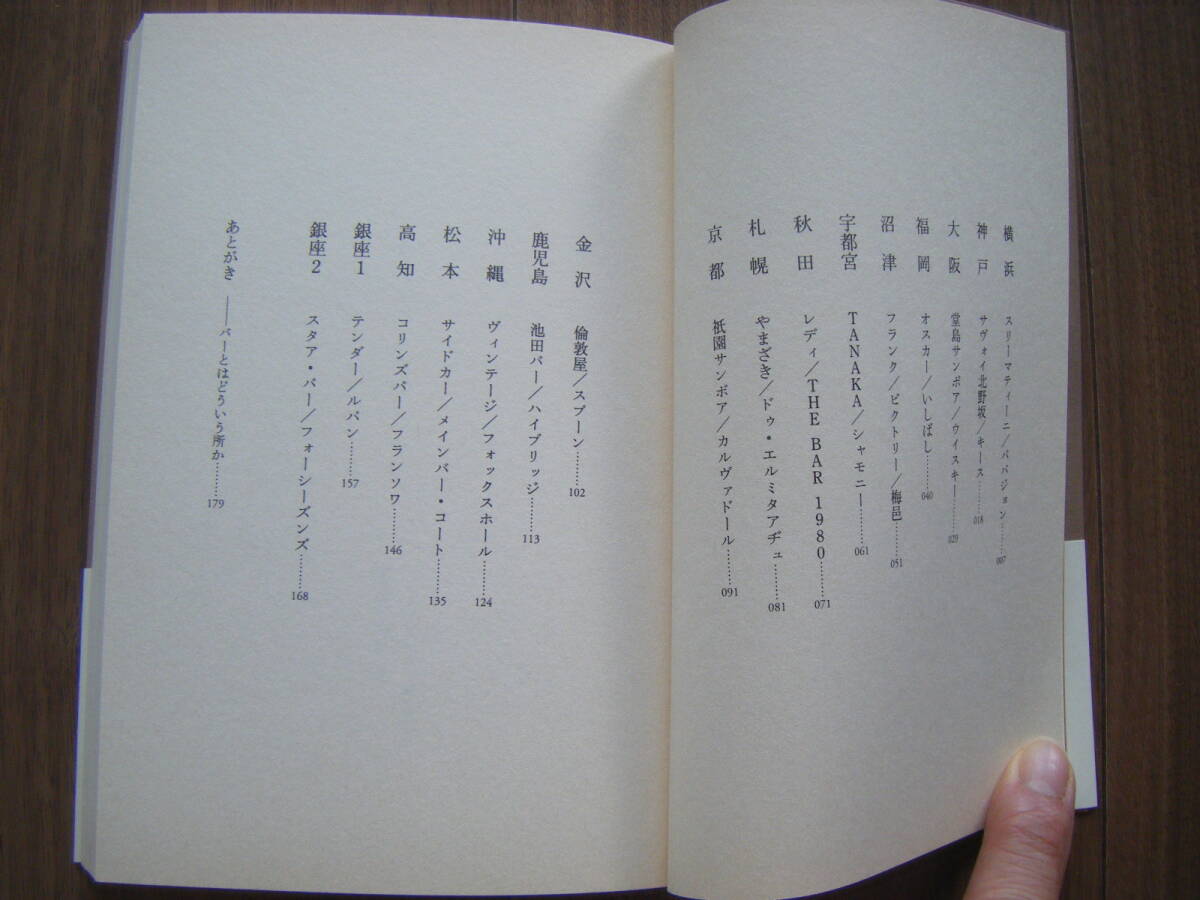 横浜 スリーマティーニ/パパジョン………007
神戸 サヴォイ北野坂/キース………018
大阪 堂島サンボア/ウイスキー………029
福岡 オスカー/いしばし………040
沼津 フランク/ビクトリー/梅邑………051
宇都宮 TANAKA/シャモニー………061
秋田 レディ/THE BAR 1980………071
札幌 やまざき/ドゥ・エルミタアヂュ………081
京都 祇園サンボア/カルヴァドール………091
金沢 倫敦屋/スプーン………102
鹿児島 池田バー/ハイブリッジ………113
沖縄 ヴィンテージ/フォックスホール………124
松本 サイドカー/メインバー・コート………135
高知 コリンズバー/フランソワ………146
銀座1 テンダー/ルパン………157
銀座2 スタア・バー/フォーシーズンズ………168
あとがき ――バーとはどういう所か………179